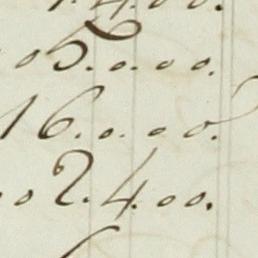 1.4.00.
05.0.00.
16.0.00.
02.4.00.